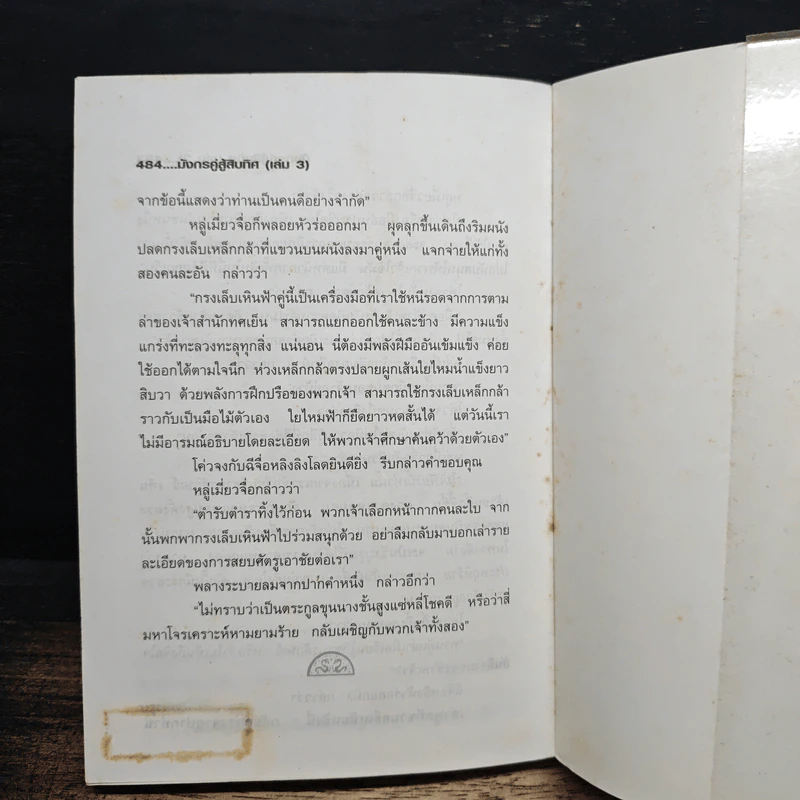 484....มังกรคู่สู้สิบทิศ (เล่ม 3)
จากข้อนี้แสดงว่าท่านเป็นคนดีอย่างจำกัด"
หลู่เมี่ยวจื่อก็พลอยหัวร่อออกมา ผุดลุกขึ้นเดินถึงริมผนัง
ปลดกรงเล็บเหล็กกล้าที่แขวนบนผนังลงมาคู่หนึ่ง แจกจ่ายให้แก่ทั้ง
สองคนละอัน กล่าวว่า
"กรงเล็บเหินฟ้าคู่นี้เป็นเครื่องมือที่เราใช้หนีรอดจากการตาม
ล่าของเจ้าสำนักทศเย็น สามารถแยกออกใช้คนละข้าง มีความแข็ง
แกร่งที่ทะลวงทะลุทุกสิ่ง แน่นอน นี่ต้องมีพลังฝีมืออันเข้มแข็ง ค่อย
ใช้ออกได้ตามใจนึก ห่วงเหล็กกล้าตรงปลายผูกเส้นใยไหมน้ำแข็งยาว
สิบวา ด้วยพลังการฝึกปรือของพวกเจ้า สามารถใช้กรงเล็บเหล็กกล้า
ราวกับเป็นมือไม้ตัวเอง ใยไหมฟ้าก็ยืดยาวหดสั้นได้ แต่วันนี้เรา
ไม่มีอารมณ์อธิบายโดยละเอียด ให้พวกเจ้าศึกษาค้นคว้าด้วยตัวเอง"
โค่วจงกับฉีจื่อหลิงลิงโลดยินดียิ่ง รีบกล่าวคำขอบคุณ
หลู่เมี่ยวจื่อกล่าวว่า
"ตำรับตำราทิ้งไว้ก่อน พวกเจ้าเลือกหน้ากากคนละใบ จาก
นั้นพกพากรงเล็บเหินฟ้าไปร่วมสนุกด้วย อย่าลืมกลับมาบอกเล่าราย
ละเอียดของการสยบศัตรูเอาชัยต่อเรา"
พลางระบายลมจากปากคำหนึ่ง กล่าวอีกว่า
"ไม่ทราบว่าเป็นตระกูลขุนนางชั้นสูงแซ่หลี่โชคดี หรือว่าสี่
มหาโจรเคราะห์หามยามร้าย กลับเผชิญกับพวกเจ้าทั้งสอง"